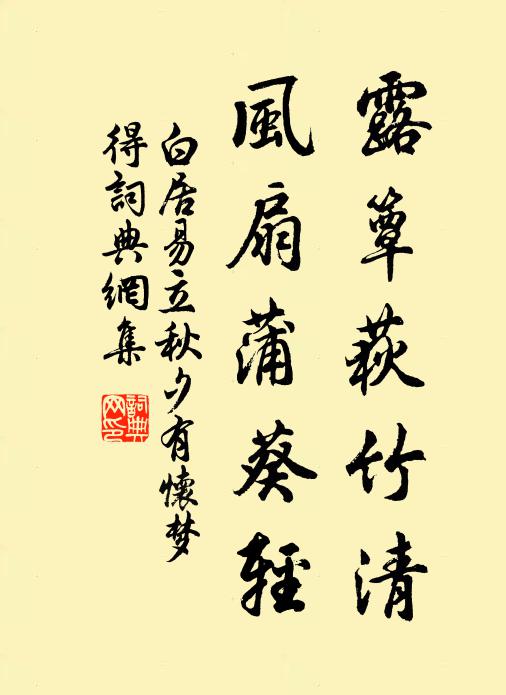 露簟荻竹清
風扇蒲葵輕
白居易立秋夕有懷梦
得詞典網集
詞典
网印